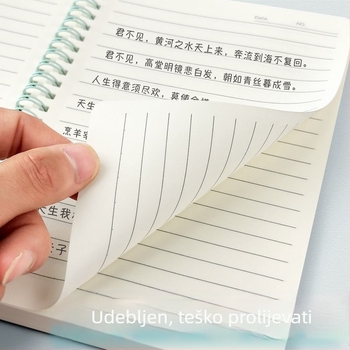 君不见，黄河之水天上来，奔流到海不复回。
君不见，高堂明镜悲白发，朝如青丝暮成雪。
人生得意须尽欢，莫使金樽
天生
烹羊
天生我
Udebljen, teško prolijevati